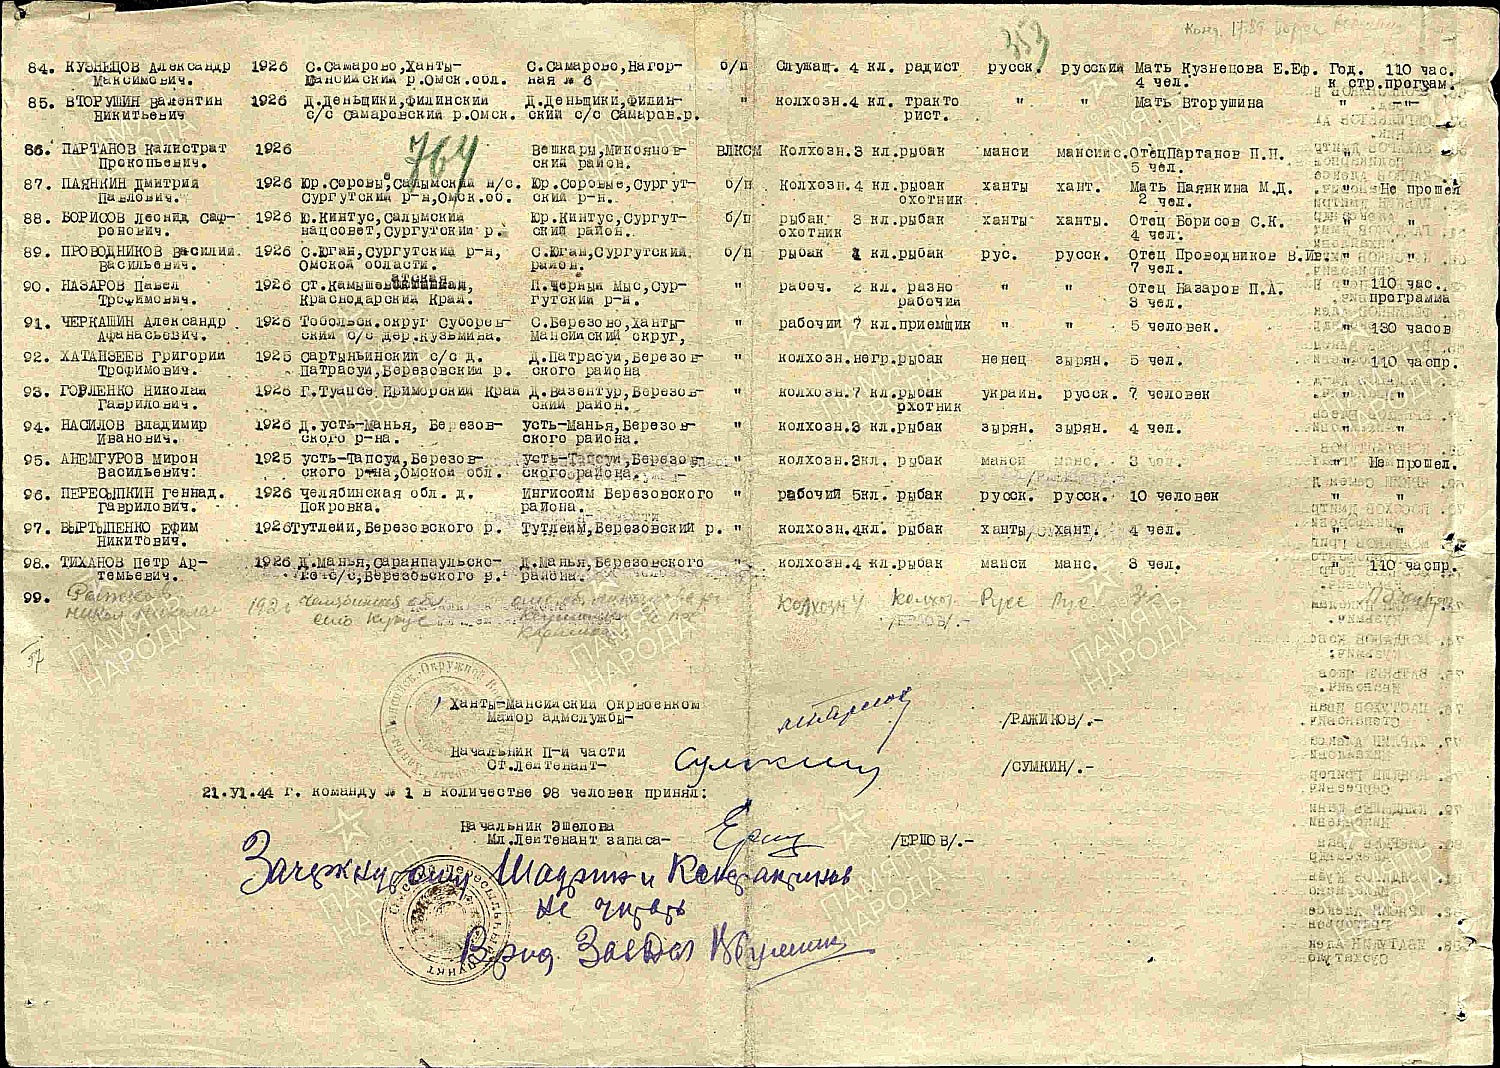 353
84. КУЗНЕЦОВ Александр 1926 С.Самарово,Ханты- С.Самарово,Нагор- б/п Служащ. 4 кл. радист русск. русский Мать Кузнецова Е.Еф. Год. 110 час.
Максимович. Мансийский р.Омск.обл. ная № 6 4 чел. к стр.програм.
85. ВТОРУШИН Валентин 1926 Д.Деньщики,филинский Д.Деньщики,филин- " колхозн.4 кл. тракто " " Мать Вторушина " -"-
Никитьевич с/с Самаровский р.Омск. ский с/с Самаров.р. рист.
764
86. ПАРТАНОВ Калистрат 1926 Вешкары,Микоянов- ВЛКСМ Колхозн.3 кл.рыбак манси мансийс. ОтецПартанов П.П. "
Прокопьевич. ский район. 5 чел.
87. ПАЯНКИН Дмитрий 1926 Юр.Соровые,Салымский н/с. Юр.Соровые,Сургут- б/п Колхозн.4 кл.рыбак ханты хант. Мать Паянкина М.Д. " Не прошел
Павлович. Сургутский р-н,Омск.об. ский р-н. охотник 2 чел.
88. БОРИСОВ Леонид Саф- 1926 Ю.Кинтус,Салымский Юр.Кинтус,Сургут- б/п рыбак 3 кл.рыбак ханты ханты. Отец Борисов С.К. " "
ронович. нацсовет,Сургутский р. ский район. охотник 4 чел.
89. ПРОВОДНИКОВ Василий 1926 С.Юган,Сургутский р-н, С.Юган,Сургутский б/п рыбак 1 кл.рыбак рус. русск. Отец Проводников В.Ив. " "
Васильевич. Омской области. район. 7 чел.
90. НАЗАРОВ Павел 1926 Ст.Камышеватская, П.Черный Мыс,Сур- " рабоч. 2 кл. разно " " Отец Базаров П.А. " 110 час.
Трофимович. Краснодарский Край. гутский р-н. рабочий 3 чел. программа
91. ЧЕРКАШИН Александр 1926 Тобольск.округ Суборев- С.Березово,Ханты- " рабочий 7 кл.приемщик " " 5 человек. " 130 часов
Афанасьевич. ский с/с дер.Кузьмина. Мансийский округ,
92. ХАТАНЗЕЕВ Григорий 1925 Сартыньинский с/с д. Д.Патрасуи,Березов- " колхозн.негр.рыбак ненец зырян. 5 чел. " 110 часпр.
Трофимович. Патрасуи,Березовский р. ского района
93. ГОРЛЕНКО Николай 1926 Г.Туапсе Приморский Край Д.Вазентур,Березов- " колхозн.7 кл.рыбак украин. русск. 7 человек " "
Гаврилович. ский район. охотник
94. НАСИЛОВ Владимир 1926 Д.усть-Манья, Березов- усть-Манья,Березов- " колхозн.3 кл.рыбак зырян. зырян. 4 чел. " "
Иванович. ского р-на. ского района.
95. АНЕМГУРОВ Мирон 1925 усть-Тапсуи,Березов- усть-Тапсуи,Березов " колхозн.2кл. рыбак манси манс. 3 чел. " Не прошел.
Васильевич. ского р-на,Омской обл. ского района.
96. ПЕРЕСЫПКИН Геннад. 1926 Челябинская обл. д. Ингисойм Березовского " рабочий 5кл. рыбак русск. русск. 10 человек " "
Гаврилович. Покровка. района.
97. ВЫРТЫПЕНКО Ефим 1926 Тутлейм,Березовского р. Тутлейм,Березовский р. " колхозн.4кл. рыбак ханты хант. 4 чел. " "
Никитович.
98. ТИХАНОВ Петр Ар- 1926 Д.Манья,Саранпаульско- Д.Манья,Березовского " колхозн.4 кл.рыбак манси манс. 3 чел. " 110 часпр.
темьевич. го с/с,Березовского р. района.
99. Рыжков 192 Челябинская обл. Колхозн 4 Колхоз. Русс Рус
Никол Николае село
57
Ханты-Мансийский Окрвоенком
Майор адмслужбы- /РАЖИКОВ/.-
Начальник П-й части
Ст.Лейтенант- Сумкин /СУМКИН/.-
21.У1.44 г. команду № 1 в количестве 98 человек принял:
Начальник Эшелона
Мл.Лейтенант запаса- Ершов /ЕРШОВ/.-
Шадрин и
не читать
ПАМЯТЬ НАРОДА